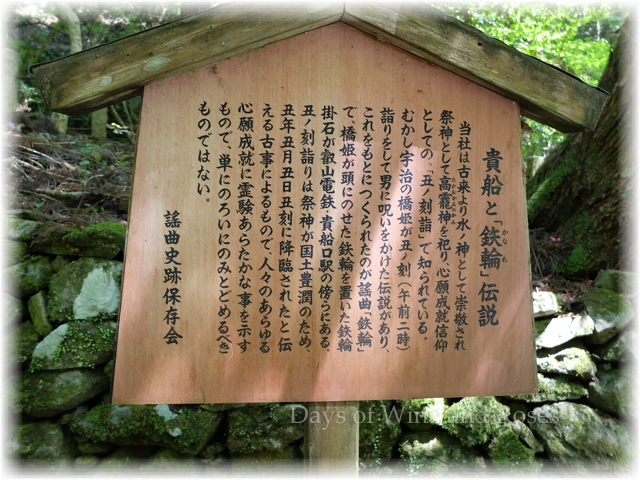 貴船と「鉄輪」伝説
かなわ
当社は古来より水ノ神として崇敬され
祭神として高龗神を祀り、心願成就信仰
たかおかみのかみ
としての、「丑ノ刻詣」で知られている。
むかし宇治の橋姫が丑ノ刻(午前二時)
詣りをして男に呪いをかけた伝説があり、
これをもとにつくられたのが謡曲「鉄輪」
で、橋姫が頭にのせた鉄輪を置いた鉄輪
掛石が叡山電鉄・貴船口駅の傍らにある。
丑ノ刻詣りは祭神が国土豊潤のため、
丑年丑月丑日丑刻に降臨されたと伝
える古事によるもので、人々のあらゆる
心願成就に霊験あらたかな事を示す
もので、単にのろいにのみとどめるべき
ものではない。
謡曲史跡保存会
Days of Wine and Roses